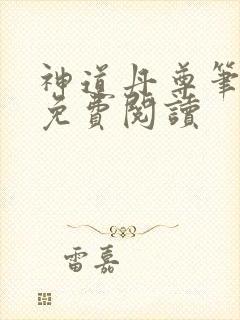 神道丹尊筆
免費閱讀
雷嘉